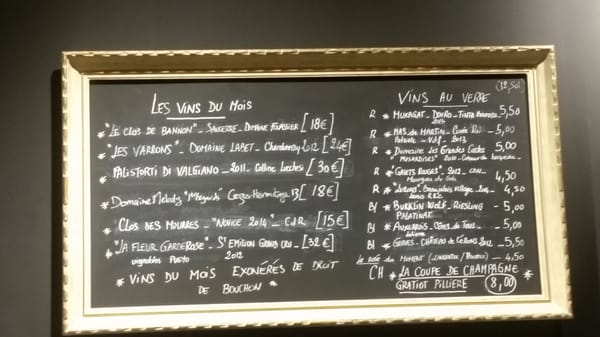 Les Vins du Mois
* "Le Clos de Bannon" - Sancerre - Domaine Fournier [18€]
* "Les Varrons" - Domaine Labet - Chardonnay 2012 [24€]
* Palistorti di Valgiano - 2011 - Colline Lucchesi [30€]
* Domaine Melody Crozes Hermitage 13 [18€]
* Clos des Mourres - "Novice 2014" - CdR [15€]
* "La Fleur Garderose - St Emilion Grand Cru - [32€]
vignobles Pueyo 2013
* Vins du Mois Exonérés de Droit
de Bouchon *
Vins au Verre
R * Muxagat - Douro - Tinta - 5,50
R * Mas de Martin - Cuvée - 5,00
R * Domaine les Grandes Costes 5,00
R * "Galets Rouges" 2012 - - 4,50
R * Beaujolais Village - - 4,50
Bl * Burklin Wolf - Riesling - 5,00
Palatinat
Bl * Auxerrois - Côtes de Toul - 5,00
Bl * Graves - Château de Cérons 2012 - 5,50
Le Rosé du Moment - 4,50
CH * La Coupe de Champagne *
Gratiot Pillière 8,00